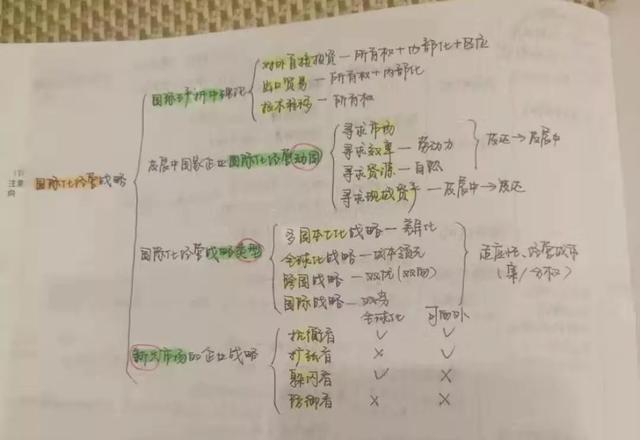 对外直接投资—所有权+内部化+区位
国际生产折中理论 出口贸易—所有权+内部化
技术转移—所有权
寻求市场
发展中国家企业国际化经营动因 寻求效率—劳动力 发达→发展中
寻求资源—自然
寻求现成资产—发展中→发达
国际化经营战略
多国本土化战略—差异化
国际化经营战略类型 全球化战略—成本领先 适应性、经营战市
跨国战略—双优(双高) (集/分权)
国际战略—双劣
全球化 可向外
抗衡者 √ √
新兴市场的企业战略 扩张者 × √
躲闪者 √ ×
防御者 × ×